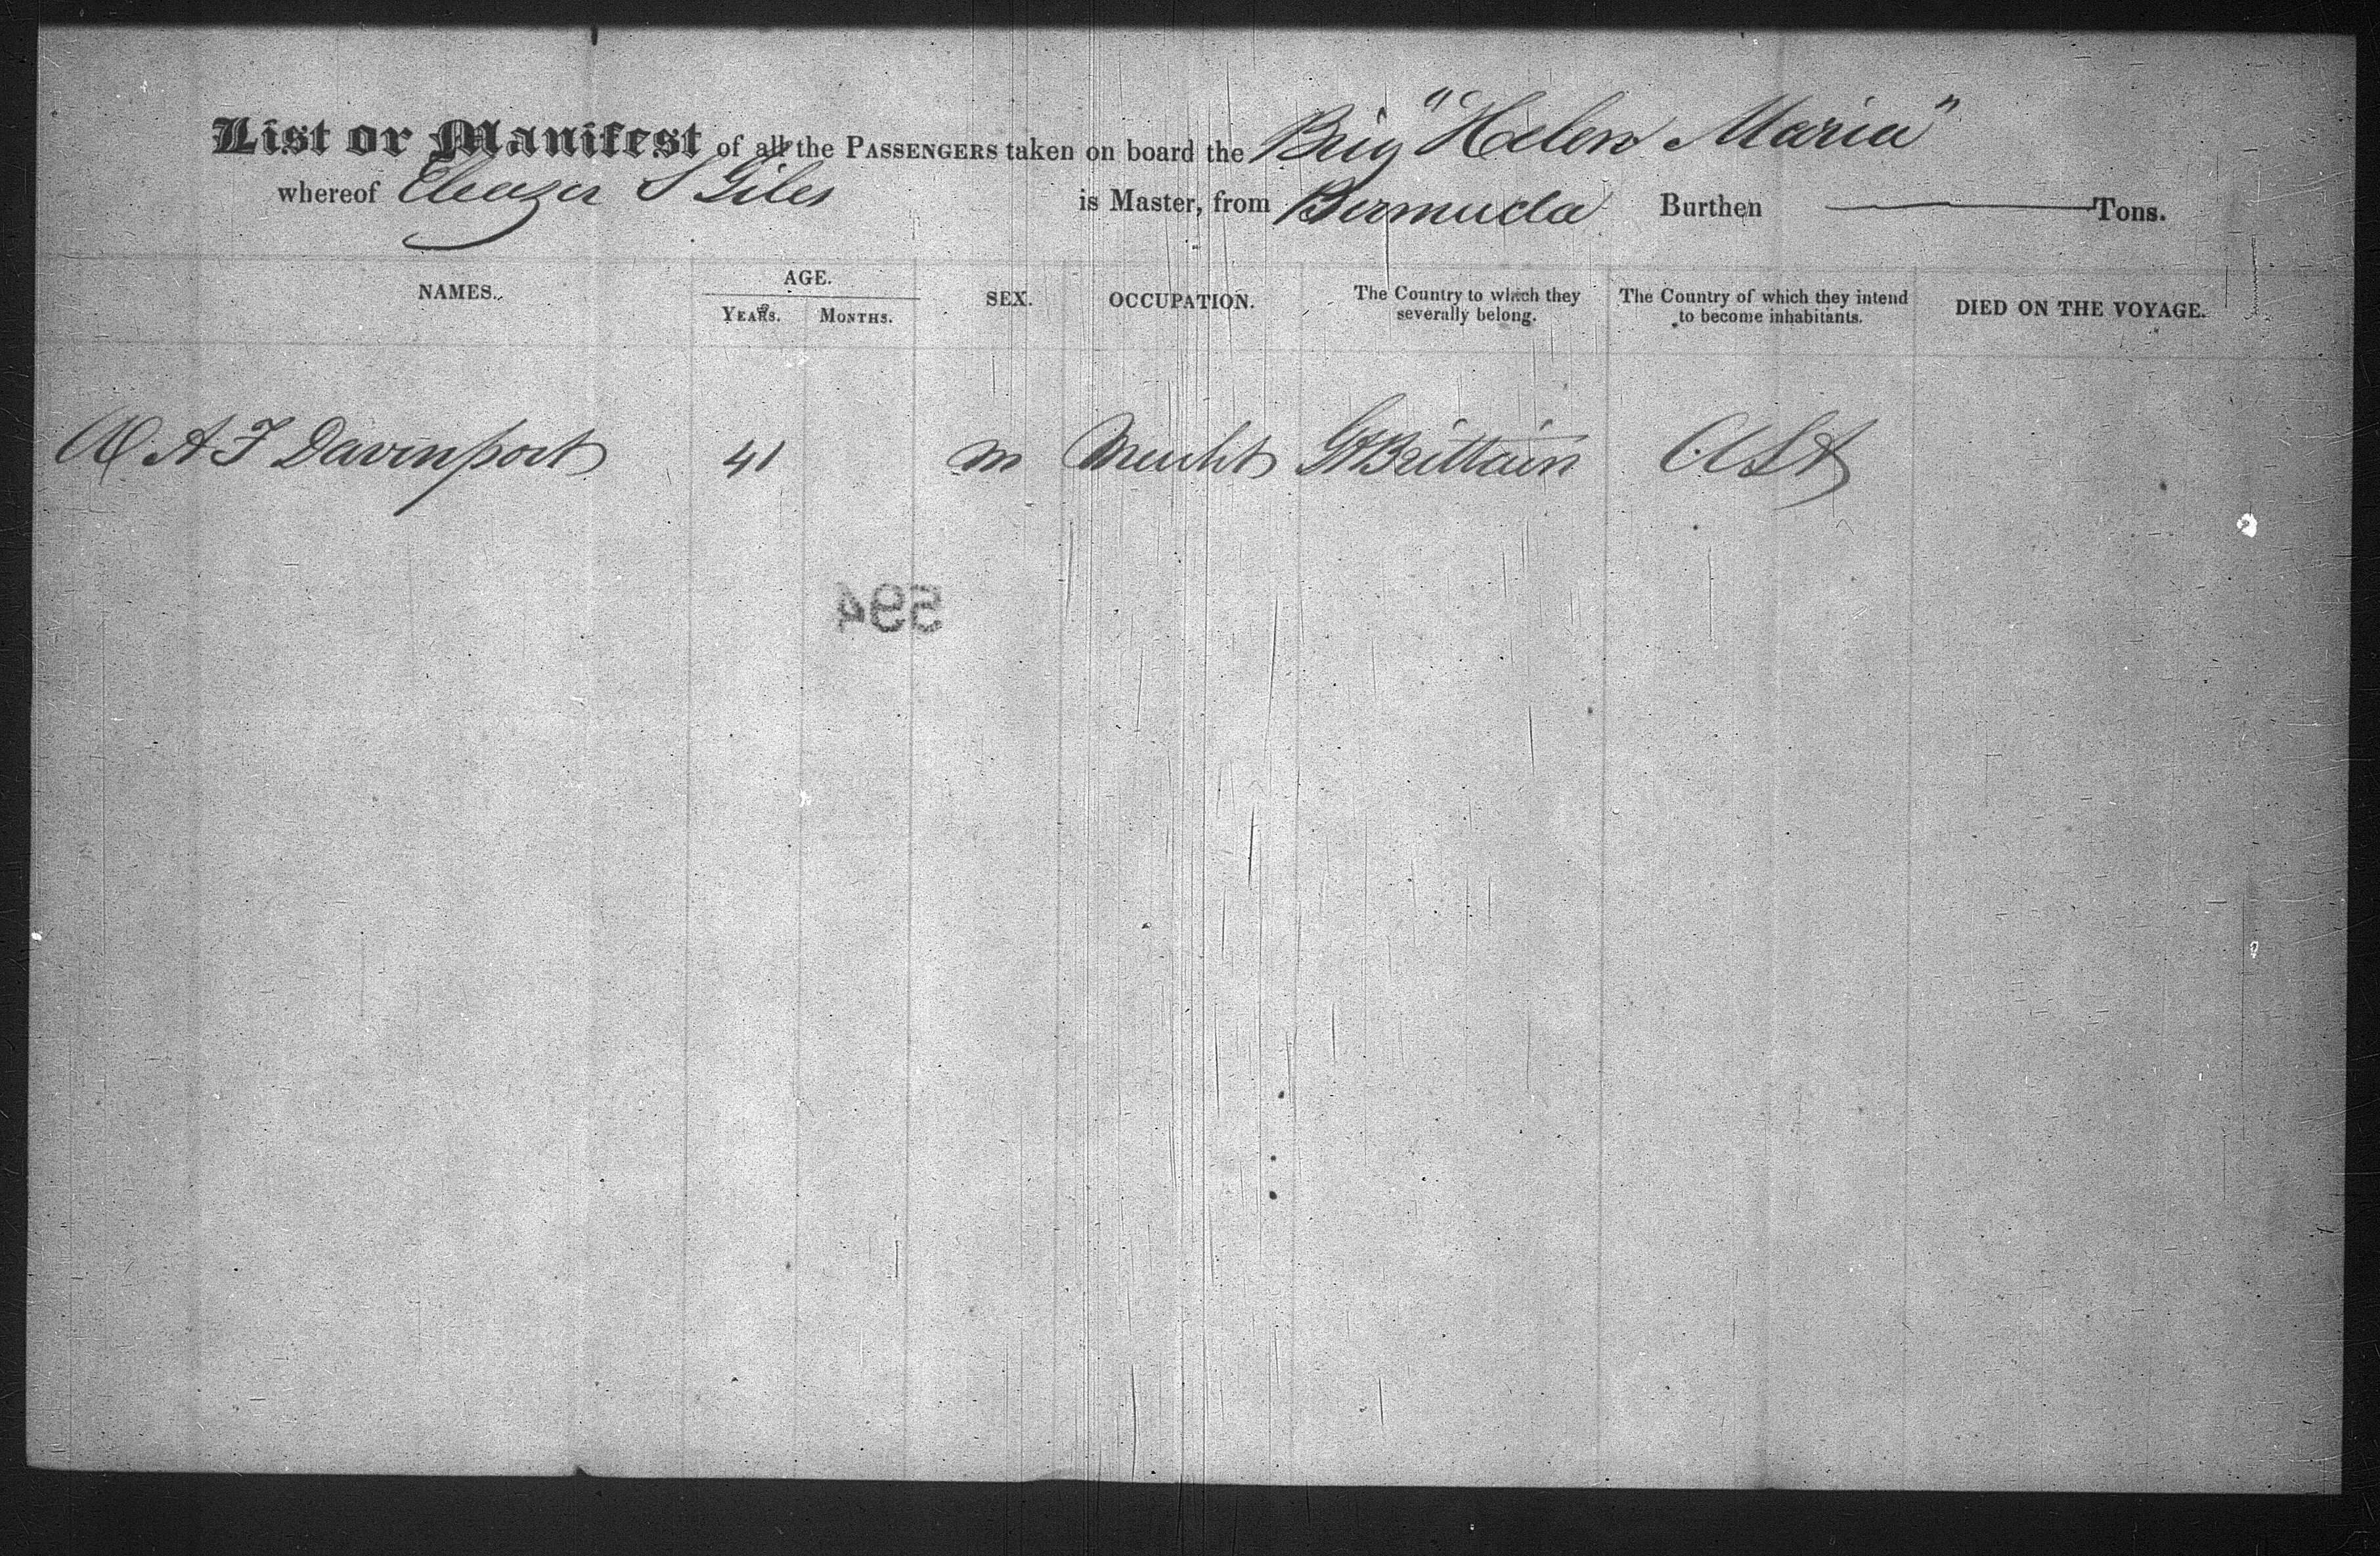 List or Manifest of all the PASSENGERS taken on board the Brig "Helen Maria"
whereof Eleazer S Giles is Master, from Bermuda Burthen Tons.
NAMES. AGE. SEX. OCCUPATION. The Country to which they severally belong. The Country of which they intend to become inhabitants. DIED ON THE VOYAGE.
YEARS. MONTHS.
A F Davenport 41 m Mercht Gt Brittain USA
594